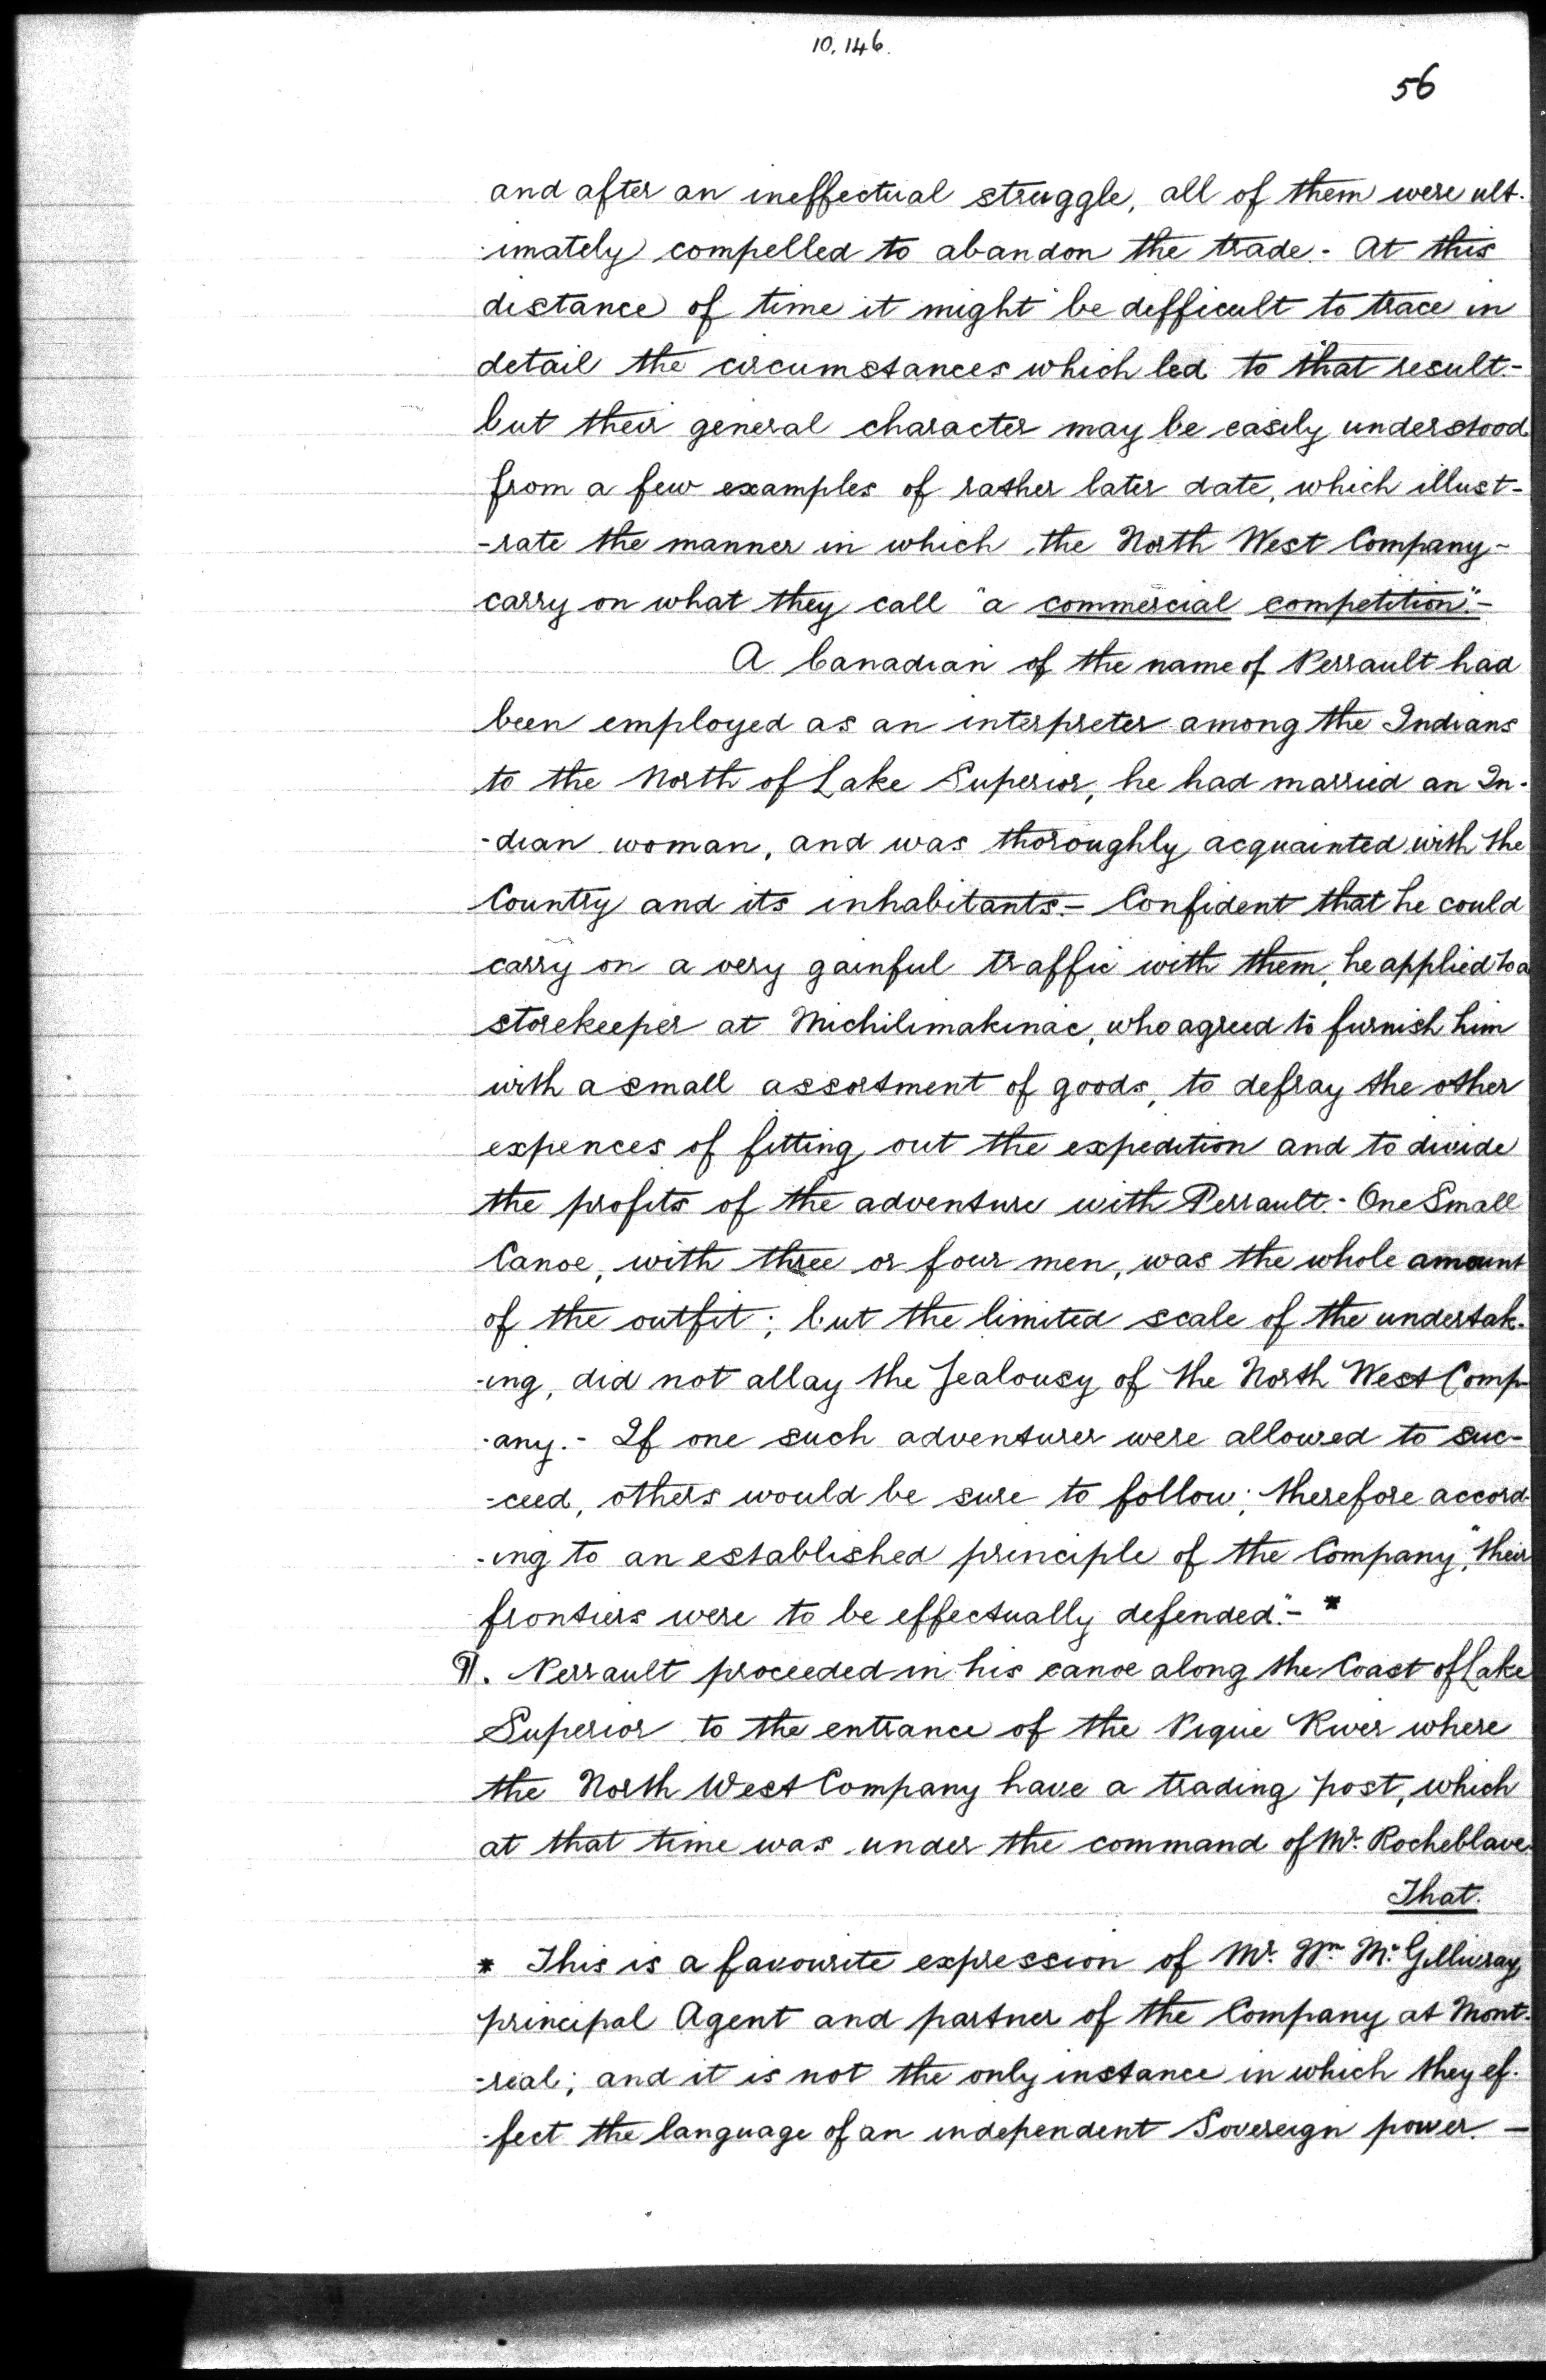 10.146.
56
and after an ineffectual struggle, all of them were ult-
-imately compelled to abandon the trade - At this
distance of time it might be difficult to trace in
detail the circumstances which led to that result.-
but their general character may be easily understood
from a few examples of rather later date, which illust-
-rate the manner in which the North West Company-
carry on what they call "a commercial competition".-
A Canadian of the name of Perrault had
been employed as an interpreter among the Indians
to the North of Lake Superior, he had married an In-
-dian woman, and was thoroughly acquainted with the
Country and its inhabitants.- Confident that he could
carry on a very gainful traffic with them, he applied to a
storekeeper at Michilimakinac, who agreed to furnish him
with a small assortment of goods, to defray the other
expences of fitting out the expedition and to divide
the profits of the adventure with Perrault.- One Small
Canoe, with three or four men, was the whole amount
of the outfit; but the limited scale of the undertak-
-ing, did not allay the Jealousy of the North West Comp-
-any.- If one such adventurer were allowed to suc-
-ceed, others would be sure to follow; therefore accord-
-ing to an established principle of the Company, "their
frontiers were to be effectually defended".- *
¶. Perrault proceeded in his canoe along the Coast of Lake
Superior to the entrance of the Pique River where
the North West Company have a trading post, which
at that time was under the command of Mr. Rocheblave.
That.
* This is a favourite expression of Mr. Wm McGillivray,
principal Agent and partner of the Company at Mont-
-real; and it is not the only instance in which they ef-
-fect the language of an independent Sovereign power. -